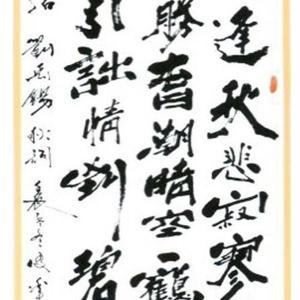 逢秋悲寂寥
勝春朝晴空一鶴
引詩情到碧
劉禹錫秋詞